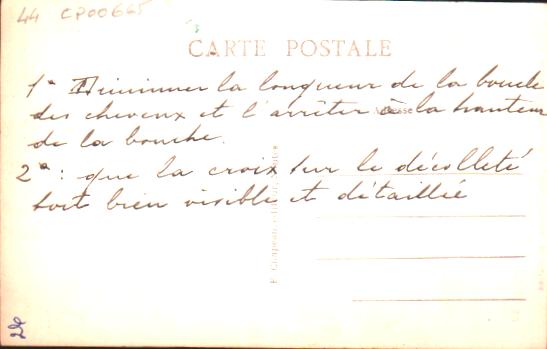 44 CP00665
CARTE POSTALE
1° Diminuer la longueur de la boucle
des cheveux et l'arrêter à la hauteur
de la bouche.
2° : que la croix sur le décolleté
soit bien visible et détaillée